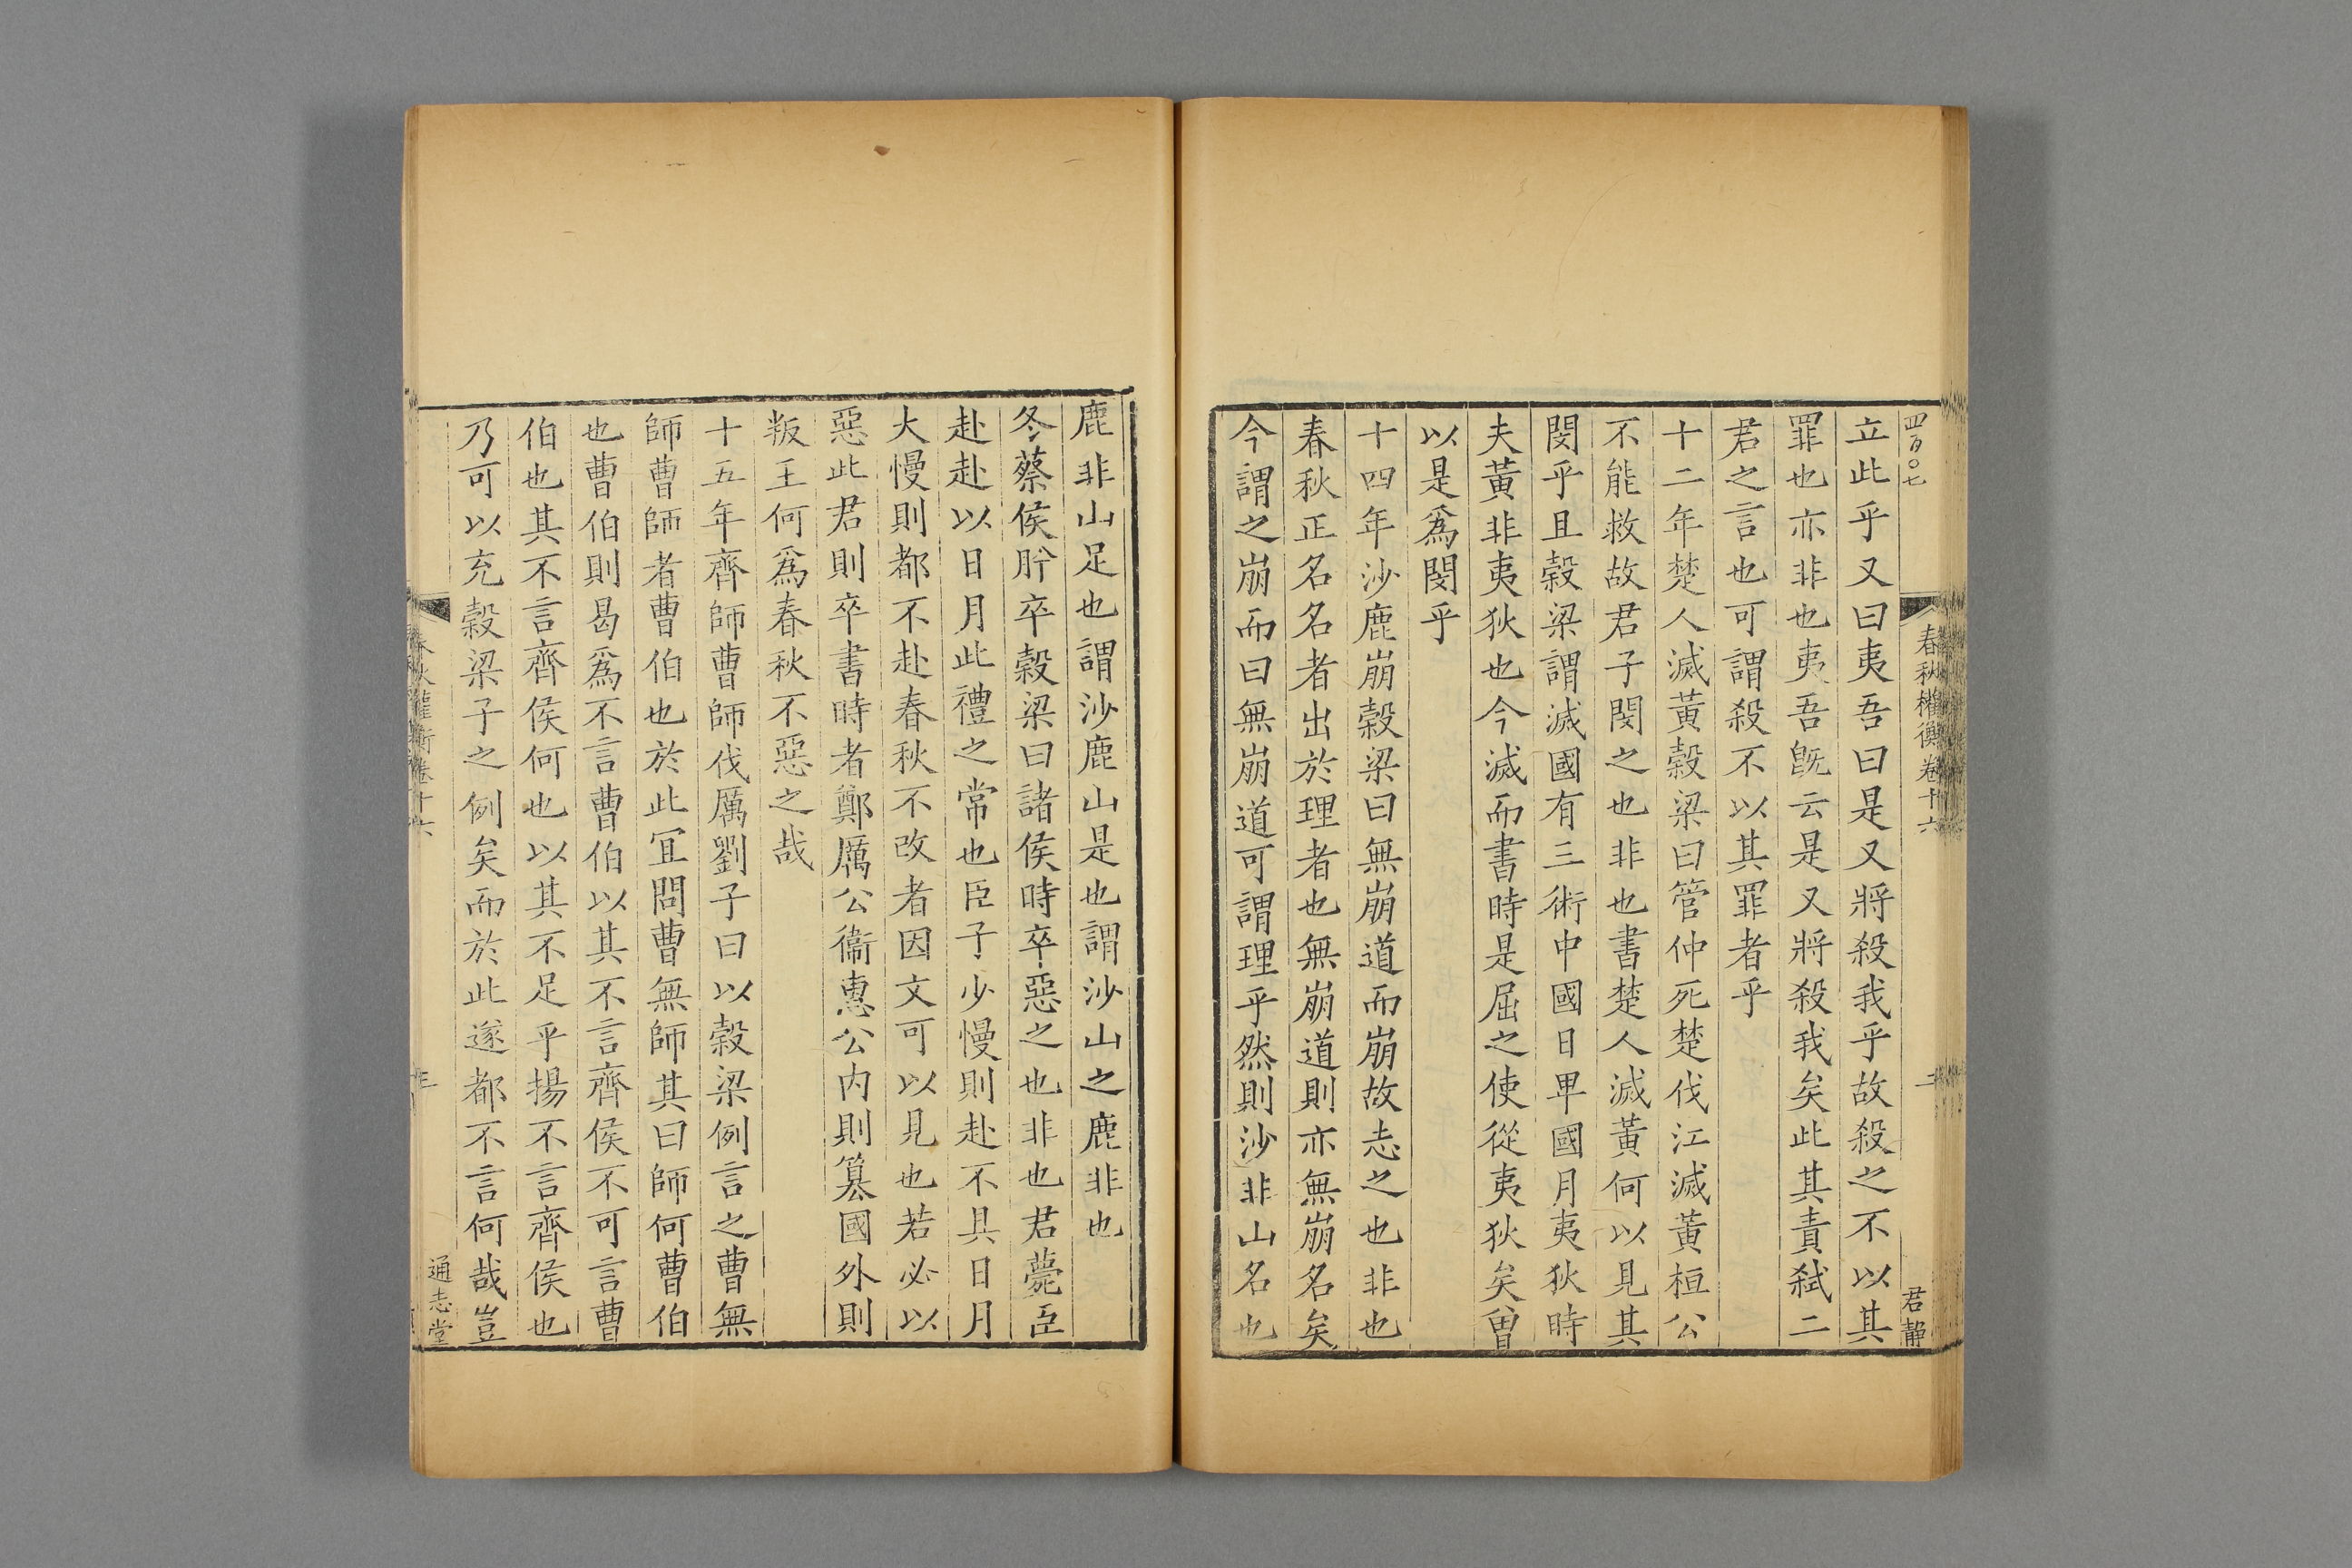 四百〇七
春秋權衡卷十六
二
君静
立此乎又曰夷吾曰是又將殺我乎故殺之不以其
罪也亦非也夷吾旣云是又將殺我矣此其責弑二
君之言也可謂殺不以其罪者乎
十二年楚人滅黃穀梁曰管仲死楚伐江滅黃桓公
不能救故君子閔之也非也書楚人滅黃何以見其
閔乎且穀梁謂滅國有三術中國日𢌿國月夷狄時
夫黃非夷狄也今滅而書時是屈之使從夷狄矣曾
以是爲閔乎
十四年沙鹿崩穀梁曰無崩道而崩故志之也非也
春秋正名名者出於理者也無崩道則亦無崩名矣
今謂之崩而曰無崩道可謂理乎然則沙非山名也
鹿非山足也謂沙鹿山是也謂沙山之鹿非也
冬蔡侯肸卒穀梁曰諸侯時卒惡之也非也君薨臣
赴赴以日月此禮之常也臣子少慢則赴不具日月
大慢則都不赴春秋不改者因文可以見也若必以
惡此君則卒書時者鄭厲公衞惠公内則篡國外則
叛王何爲春秋不惡之哉
十五年齊師曹師伐厲劉子曰以穀梁例言之曹無
師曹師者曹伯也於此宜問曹無師其曰師何曹伯
也曹伯則曷爲不言曹伯以其不言齊侯不可言曹
伯也其不言齊侯何也以其不足乎揚不言齊侯也
乃可以充穀梁子之例矣而於此遂都不言何哉豈
春秋權衡卷十六
通志堂